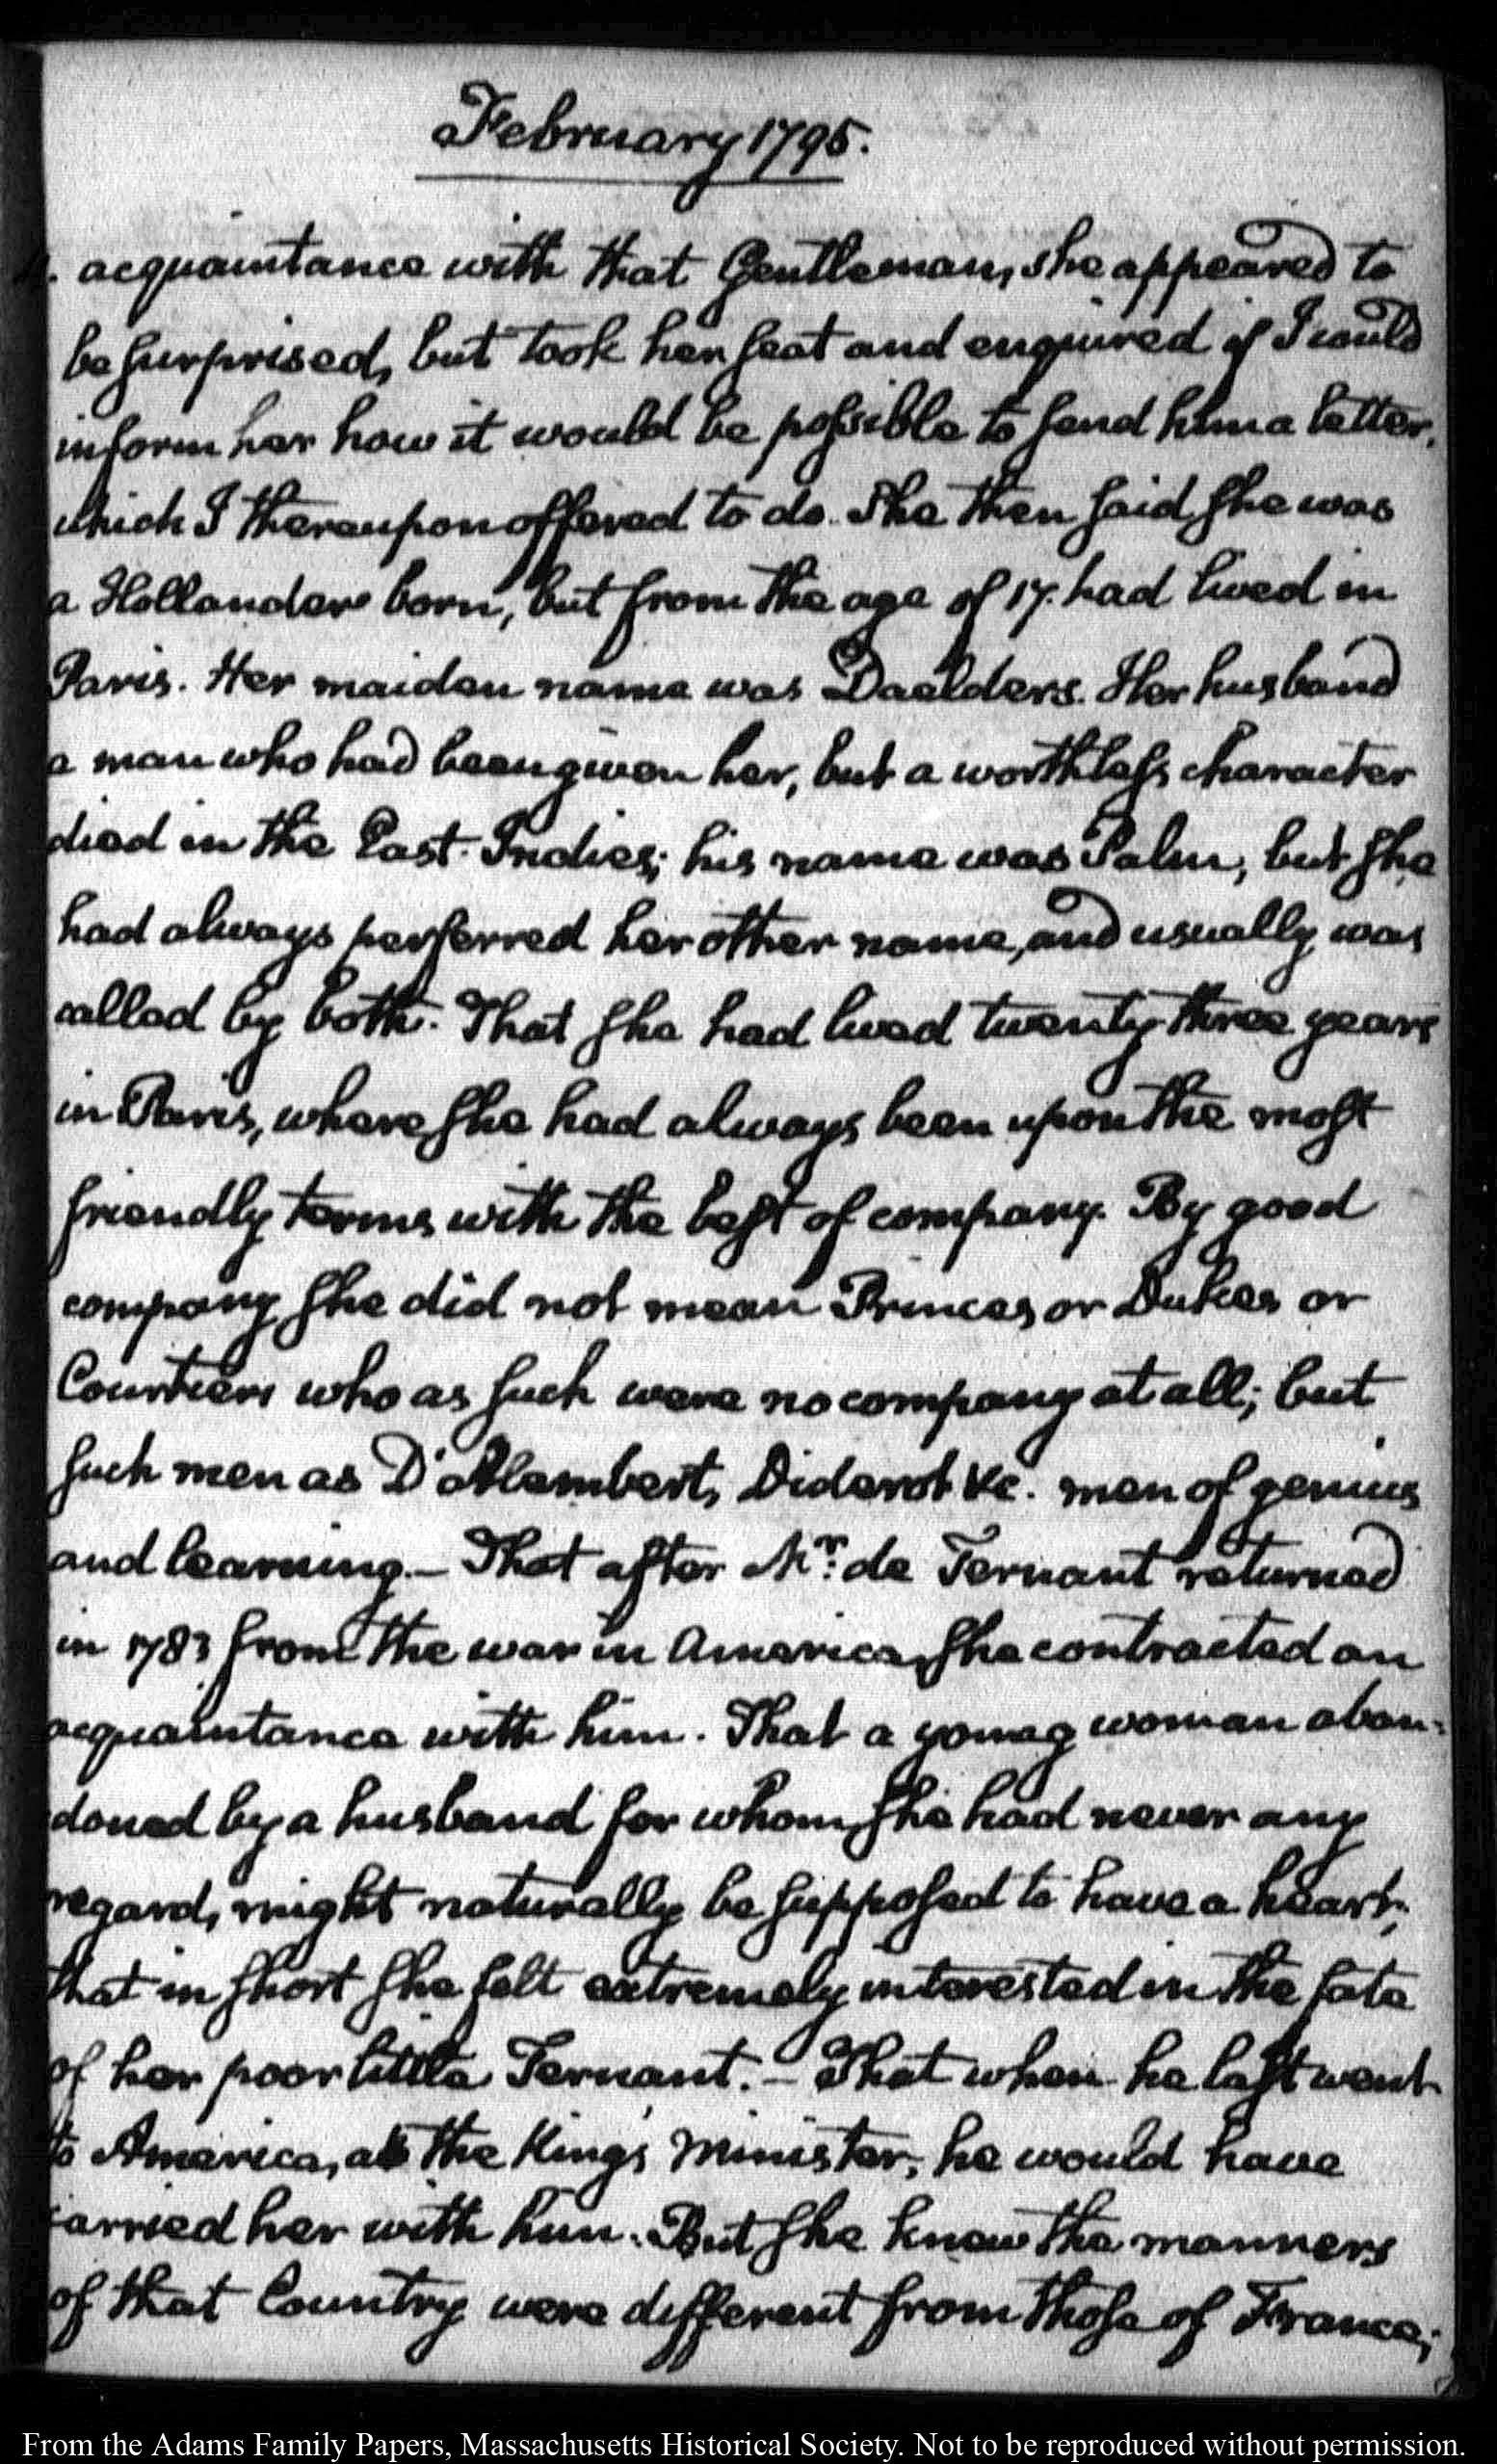 February 1795.
acquaintance with that Gentleman, she appeared to
be surprised, but took her seat and enquired if I could
inform her how it would be possible to send him a letter,
which I thereupon offered to do. She then said she was
a Hollander born, but from the age of 17. had lived in
Paris. Her maiden name was Daelders. Her husband
a man who had been given her, but a worthless character
died in the East-Indies; his name was Palm, but she
had always perferred her other name, and usually was
called by both. That she had lived twenty three years
in Paris, where she had always been upon the most
friendly terms with the best of company. By good
company she did not mean Princes or Dukes or
Courtiers who as such were no company at all; but
such men as D'Alembert, Diderot &c. men of genius
and learning.— That after Mr. de Ternant returned
in 1783 from the war in America, she contracted an
acquaintance with him. That a young woman aban-
doned by a husband for whom she had never any
regard, might naturally be supposed to have a heart;
that in short she felt extremely interested in the fate
of her poor little Ternant.— That when he last went
to America, as the King's Minister, he would have
carried her with him. But she knew the manners
of that Country were different from those of France;
From the Adams Family Papers, Massachusetts Historical Society. Not to be reproduced without permission.